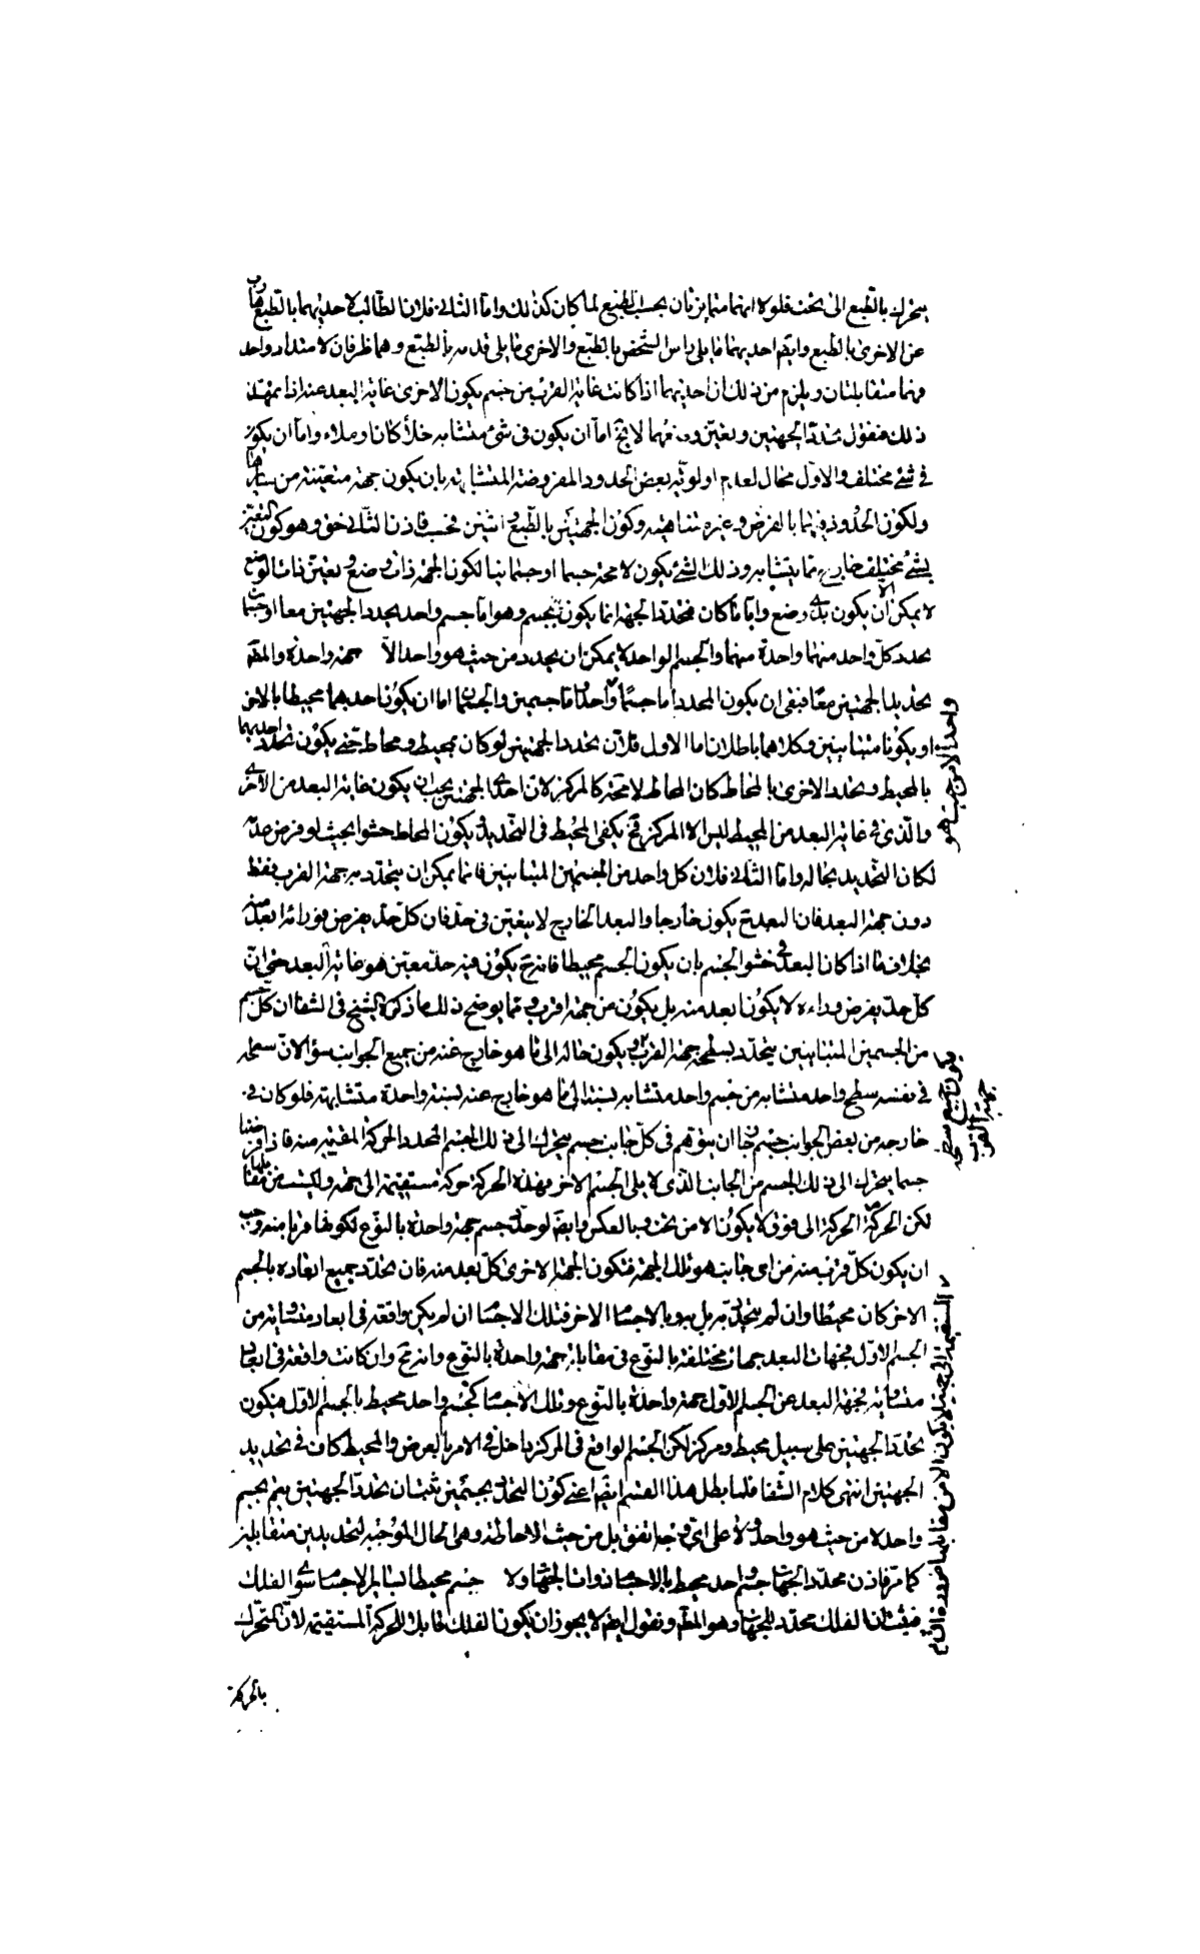 يتحرك بالطبع الى تحت فلولا انهما متمايزتان بحسب الطبع لما كان كذلك واما الثانى فلان الطالب لاحديهما بالطبع هارب
عن الاخرى بالطبع وايضا احديهما ما يلى راس الشخص بالطبع والاخرى ما يلى قدمه بالطبع وهما طرفان لامتداد واحد
فهما متقابلتان ويلزم من ذلك ان احديهما اذا كانت غاية القرب من جسم يكون الاخرى غاية البعد عنه اذا تمهد
ذلك فنقول تحدد الجهتين وتعين وضعهما لا يخ اما ان يكون فى شئ متشابه خلأ كان او ملاء واما ان يكون
فى شئ مختلف والاول محال لعدم اولوية بعض الحدود المفروضة المتشابهة بان يكون جهة متعينة من سايرها
ولكون الحدود فيهما بالفرض وغير متناهية وكون الجهتين بالطبع اثنتين فحسب فاذن الثانى حق وهو كون التعين
بشئ مختلف خارج مما يتشابه وذلك الشئ يكون لا محة جسما او جسمانيا لكون الجهة ذات وضع وتعين ذات الوضع
لا يمكن الا ان يكون بذى وضع وايا ما كان فمحدد الجهة انما يكون بجسم وهو اما جسم واحد يحدد الجهتين معا او جسمان
يحدد كل واحد منهما واحدة منهما والجسم الواحد لا يمكن ان يحدد من حيث هو واحد الا جهة واحدة والمفروض
تحديد الجهتين معا فبقى ان يكون المحدد اما جسما واحدا لا من حيث هو واحد واما جسمين والجسمان اما ان يكون احدهما محيطا بالاخر
او يكونا متباينين وكلاهما باطلان اما الاول فلان تحدد الجهتين لو كان بمحيط ومحاط حتى يكون تحدد احديهما
بالمحيط وتحدد الاخرى بالمحاط كان المحاط لا محة كالمركز لان احدى الجهتين يجب ان يكون غاية البعد من الاخرى
والذى فى غاية البعد من المحيط ليس الا المركز فح يكفى المحيط فى التحديد ويكون المحاط حشوا بحيث لو فرض عدمه
لكان التحديد بحاله واما الثانى فلان كل واحد من الجسمين المتباينين فانما يمكن ان يتحدد به جهة القرب فقط
دون جهة البعد فان البعد ح يكون خارجا والبعد الخارج لا يتعين فى حد فان كل حد يفرض فورائه ابعد منه
بخلاف ما اذا كان البعد فى حشو الجسم بان يكون الجسم محيطا فانه ح يكون فيه حد معين هو غاية البعد حتى ان
كل حد يفرض وراءه لا يكون ابعد منه بل يكون من جهة اقرب ومما يوضح ذلك ما ذكره الشيخ فى الشفا ان كل جسم
من الجسمين المتباينين يتحدد بسطحه جهة القرب ويكون حاله الى ما هو خارج عنه من جميع الجوانب سواء لان سطحه
فى نفسه سطح واحد متشابه من جسم واحد متشابه نسبته الى ما هو خارج عنه نسبة واحدة متشابهة فلو كان فى
خارجه من بعض الجوانب جسم جاز ان يتوهم فى كل جانب جسم يتحرك الى ذلك الجسم المحدد الحركة المقربة منه فاذا فرضنا
جسما يتحرك الى ذلك الجسم من الجانب الذى لا يلى الجسم الاخر فهذه الحركة حركة مستقيمة الى جهة وليست من مقابلها
لكن الحركة الى فوق لا يكون الا من تحت وبالعكس وايضا لو حدد جسم جهة واحدة بالنوع لكونها قربا منه وجب
ان يكون كل قرب منه من اى جانب هو تلك الجهة فتكون الجهة الاخرى كل بعد منه فان تحدد جميع ابعاده بالجسم
الاخر كان محيطا وان لم يتحدد به بل به وبالاجسام الاخر فتلك الاجسام ان لم يكن واقعة فى ابعاد متساوية من
الجسم الاول فجهات البعد جهات مختلفة بالنوع فى مقابلة جهة واحدة بالنوع وانه ح وان كانت واقعة فى ابعاد
متساوية فجهة البعد عن الجسم الاول جهة واحدة بالنوع وتلك الاجسام كجسم واحد محيط بالجسم الاول فيكون
تحدد الجهتين على سبيل محيط ومركز لكن الجسم الواقع فى المركز داخل فى الامر بالعرض والمحيط كاف فى تحديد
الجهتين انتهى كلام الشفا فلما بطل هذا القسم ايضا اعنى كون التحدد بجسمين ثبت ان تحدد الجهتين يتم بجسم
واحد لا من حيث هو واحد ولا على اى وجه اتفق بل من حيث الاحاطة وهى الحال الموجبة لتحديدين متقابلين
كما مر فاذن محدد الجهات جسم واحد محيط بالاجسام ذوات الجهات ولا جسم محيط بساير الاجسام سوى الفلك
فثبت ان الفلك محدد للجهات وهو المط ونقول ايضا لا يجوز ان يكون الفلك قابلا للحركة المستقيمة لان المتحرك
بالحركة
واحد لا من حيث هو
يكون جميع سطحه
جهة القرب